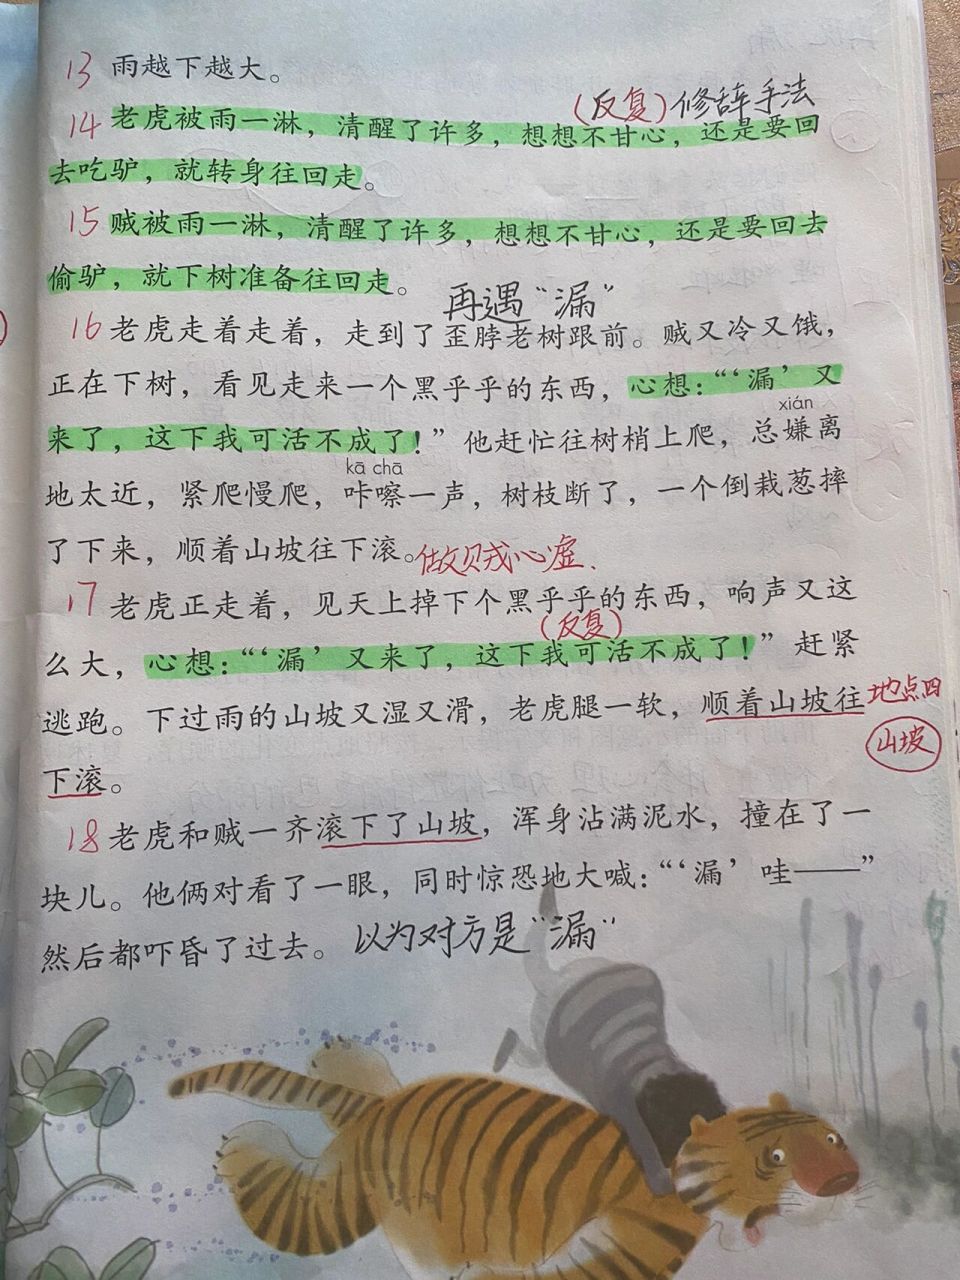 13 雨越下越大。
(反复)修辞手法
14 老虎被雨一淋，清醒了许多，想想不甘心，还是要回
去吃驴，就转身往回走。
15 贼被雨一淋，清醒了许多，想想不甘心，还是要回去
偷驴，就下树准备往回走。
再遇“漏”
16 老虎走着走着，走到了歪脖老树跟前。贼又冷又饿，
正在下树，看见走来一个黑乎乎的东西，心想：“‘漏’又
xián
来了，这下我可活不成了！”他赶忙往树梢上爬，总嫌离
kā chā
地太近，紧爬慢爬，咔嚓一声，树枝断了，一个倒栽葱摔
了下来，顺着山坡往下滚。
做贼心虚.
17 老虎正走着，见天上掉下个黑乎乎的东西，响声又这
(反复)
么大，心想：“‘漏’又来了，这下我可活不成了！”赶紧
逃跑。下过雨的山坡又湿又滑，老虎腿一软，顺着山坡往
地点四
山坡
下滚。
18 老虎和贼一齐滚下了山坡，浑身沾满泥水，撞在了一
块儿。他俩对看了一眼，同时惊恐地大喊：“‘漏’哇——”
然后都吓昏了过去。
以为对方是“漏”